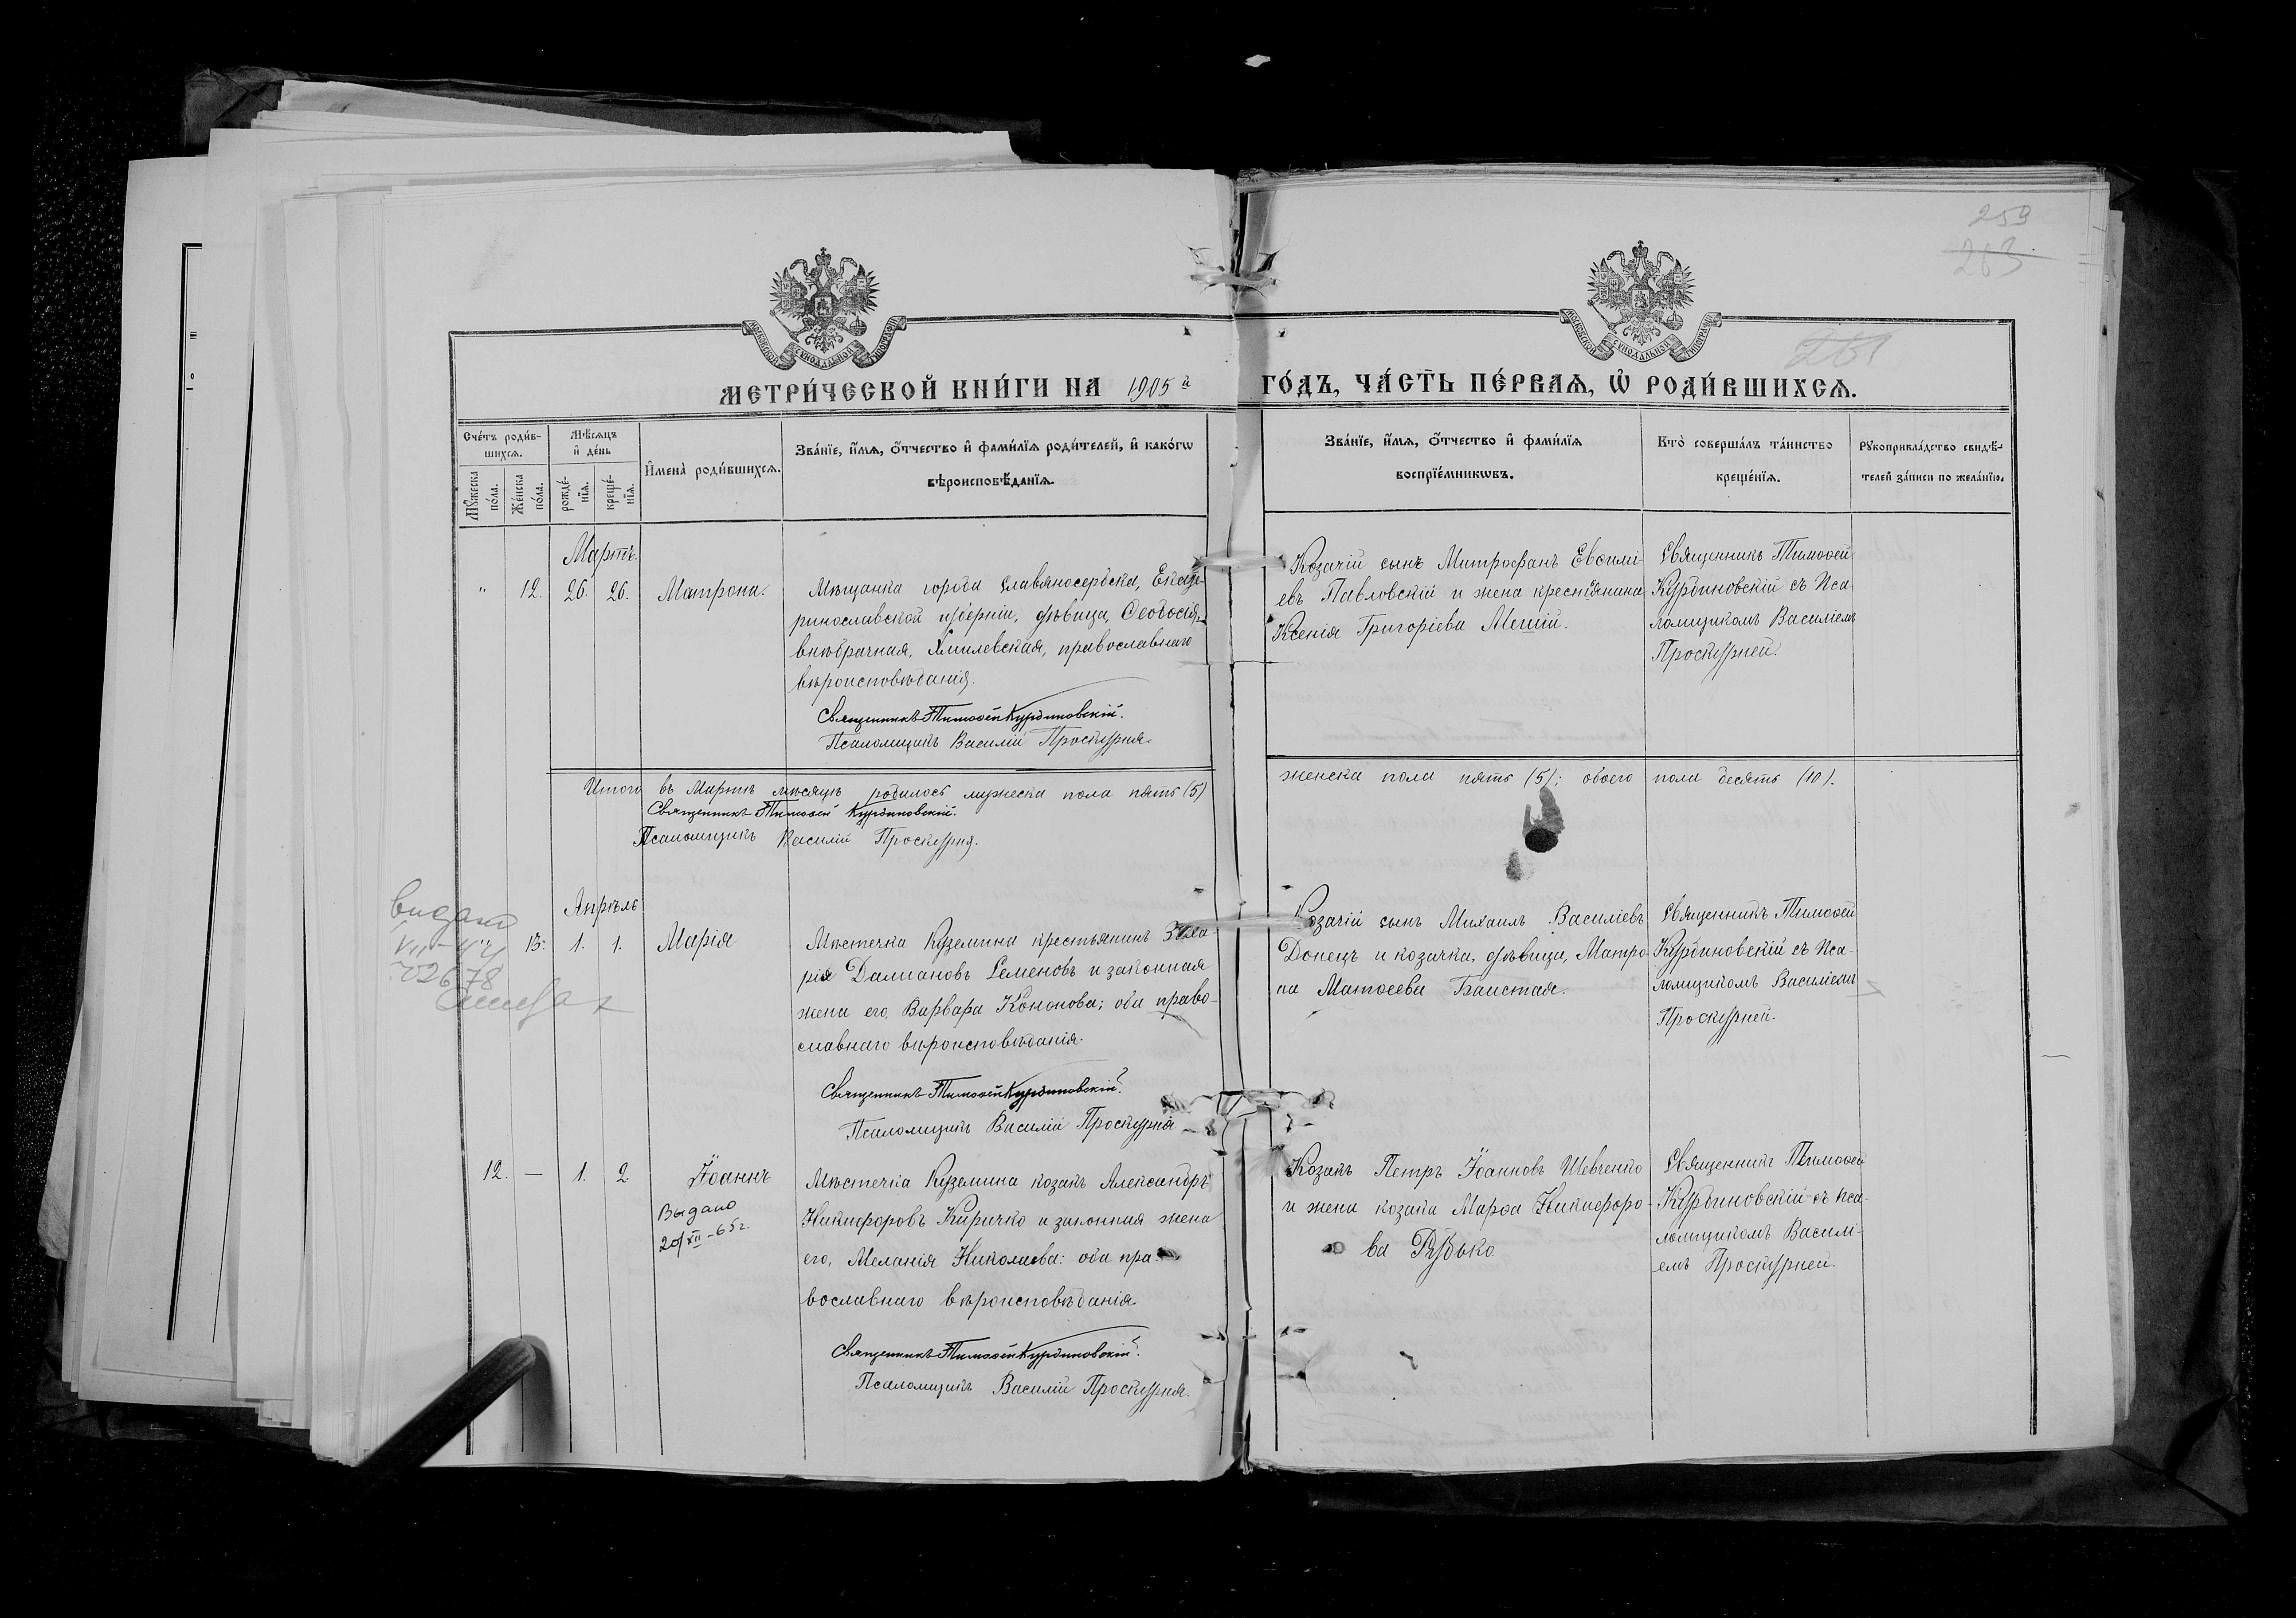 259
263
МОСКОВСКОЙ СѴНОДАЛЬНОЙ ТИПОГРАФІИ
МОСКОВСКОЙ СѴНОДАЛЬНОЙ ТИПОГРАФІИ
МЕТРИ́ЧЕСКОЙ КНИ́ГИ НА 1905й ГО́ДЪ, ЧА́СТЬ ПЕ́РВАѦ, Ѡ РОДИ́ВШИХСѦ.
Сче́тъ роди́в-
шихсѧ.
Мѣ́сѧцъ
и҆ де́нь
Мꙋжеска по́ла.
Же́нска по́ла.
рожде́-нїѧ.
креще́-нїѧ.
И҆мена̀ роди́вшихсѧ.
Зва́нїе, и҆́мѧ, ѻ҆́тчество и҆ фами́лїѧ роди́телей, и҆ како́гѡ
вѣроисповѣ́данїѧ.
Зва́нїе, и҆́мѧ, ѻ҆́тчество и҆ фами́лїѧ
воспрїе́мникѡвъ.
Кто̀ соверша́лъ та́инство
креще́нїѧ.
Рꙋкоприкла́дство свидѣ́-
телей за́писи по жела́нїю.
Мартъ.
" 12. 26. 26. Матрона.
Мѣщанка города Славяносербска, Екате-
ринославской губерніи, дѣвица, Ѳеодосія,
внѣбрачная, Хмилевская, православнаго
вѣроисповѣданія.
Священникъ Тимоѳей Курдиновскій.
Псаломщикъ Василій Проскурня.
Козачій сынъ Митрофанъ Евѳимі-
евъ Павловскій и жена крестьянина
Ксенія Григоріева Меший.
Священникъ Тимоѳей
Курдиновскій съ пса-
ломщикомъ Василіемъ
Проскурней.
Итого въ Мартѣ мѣсяцѣ родилось мужеска пола пять (5) женска пола пять (5); обоего пола десять (10).
Священникъ Тимоѳей Курдиновскій.
Псаломщикъ Василій Проскурня.
видано
Апрѣль
13. 1. 1. Марія
Мѣстечка Куземина крестьянинъ Заха-
рія Даміановъ Семеновъ и законная
жена его, Варвара Кононова; оба право-
славнаго вѣроисповѣданія.
Священникъ Тимоѳей Курдиновскій.
Псаломщикъ Василій Проскурня
Козачій сынъ Михаилъ Василіевъ
Донецъ и козачка, дѣвица, Матро-
на Матѳеева Баистая.
Священникъ Тимоѳей
Курдиновскій съ пса-
ломщикомъ Василіемъ
Проскурней.
12. — 1. 2 Іоаннъ
Выдано
20/XII-65г.
Мѣстечка Куземина козакъ Александръ
Никифоровъ Киричко и законная жена
его, Меланія Николаева: оба пра-
вославнаго вѣроисповѣданія.
Священникъ Тимоѳей Курдиновскій.
Псаломщикъ Василій Проскурня.
Козакъ Петръ Іоанновъ Шевченко
и жена козака Марѳа Никифоро-
ва Рудько
Священникъ Тимоѳей
Курдиновскій съ пса-
ломщикомъ Василі-
емъ Проскурней.